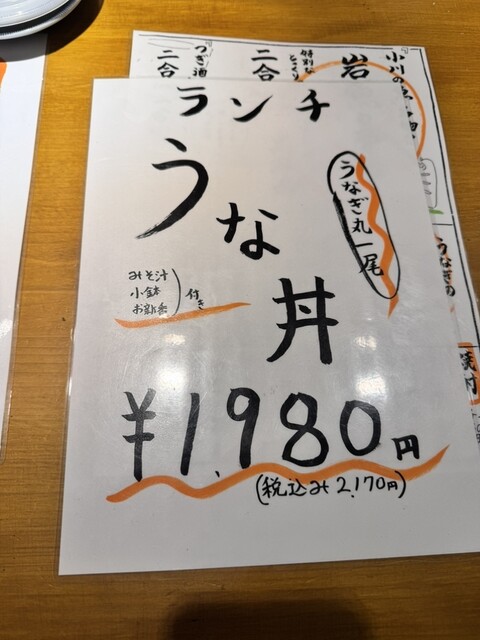 ランチ
うな丼
うなぎ丸一尾
みそ汁
小鉢
お新香
付き
¥1,980円
(税込み2,170円)
つぎ酒
二合
特別な
とっくり
二合
岩
小川の
うなぎの